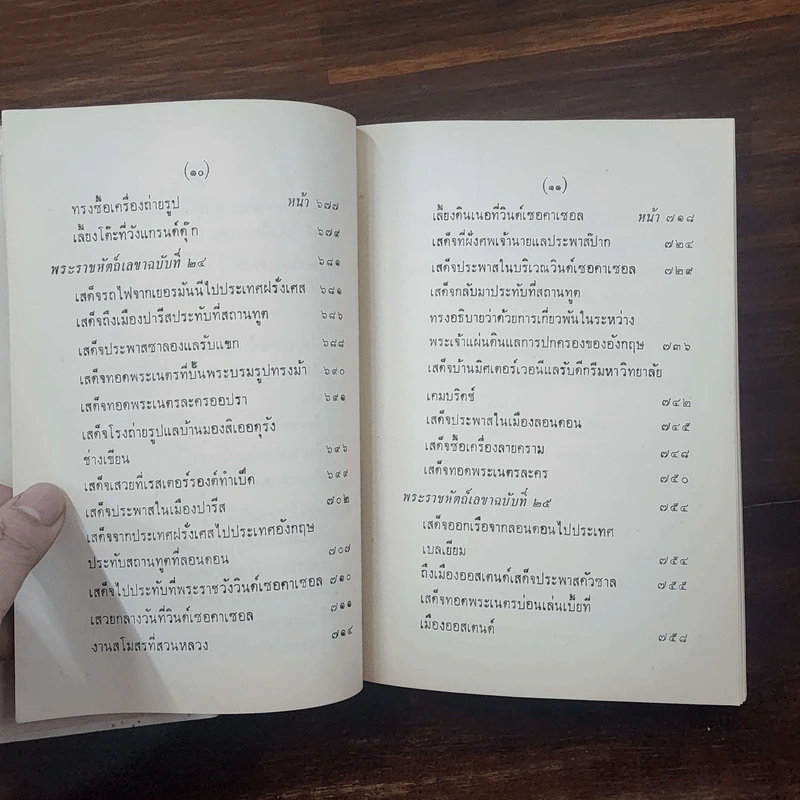 (๑๐)
ทรงซื้อเครื่องถ่ายรูป หน้า ๖๗๗
เลี้ยงโต๊ะที่วังแกรนด์ดุ๊ก ๖๗๙
พระราชหัตถ์เลขาฉบับที่ ๒๔ ๖๘๑
เสด็จรถไฟจากเยอรมันนีไปประเทศฝรั่งเศส ๖๘๑
เสด็จถึงเมืองปารีสประทับที่สถานทูต ๖๘๖
เสด็จประพาสซาลองแลรับแขก ๖๘๘
เสด็จทอดพระเนตรที่ปั้นพระบรมรูปทรงม้า ๖๙๐
เสด็จทอดพระเนตรละครออปรา ๖๙๑
เสด็จโรงถ่ายรูปแลบ้านมองสิเออดุรัง
ช่างเขียน ๖๙๖
เสด็จเสวยที่เรสเตอร์รองต์ทำเป็ด ๖๙๙
เสด็จประพาสในเมืองปารีส ๗๐๒
เสด็จจากประเทศฝรั่งเศสไปประเทศอังกฤษ
ประทับสถานทูตที่ลอนดอน ๗๐๗
เสด็จไปประทับที่พระราชวังวินด์เซอคาเซอล ๗๑๐
เสวยกลางวันที่วินด์เซอคาเซอล ๗๑๑
งานสโมสรที่สวนหลวง ๗๑๔
(๑๑)
เลี้ยงดินเนอที่วินด์เซอคาเซอล หน้า ๗๑๘
เสด็จที่ฝังศพเจ้านายแลประพาสป๊าก ๗๒๔
เสด็จประพาสในบริเวณวินด์เซอคาเซอล ๗๒๙
เสด็จกลับมาประทับที่สถานทูต
ทรงอธิบายว่าด้วยการเกี่ยวพันในระหว่าง
พระเจ้าแผ่นดินแลการปกครองของอังกฤษ ๗๓๖
เสด็จบ้านมิศเตอร์เวอนีแลรับดีกรีมหาวิทยาลัย
เคมบริดช์ ๗๔๒
เสด็จประพาสในเมืองลอนดอน ๗๔๕
เสด็จซื้อเครื่องลายคราม ๗๔๘
เสด็จทอดพระเนตรละคร ๗๕๐
พระราชหัตถ์เลขาฉบับที่ ๒๕ ๗๕๔
เสด็จออกเรือจากลอนดอนไปประเทศ
เบลเยียม ๗๕๔
ถึงเมืองออสเตนด์เสด็จประพาสคัวซาล ๗๕๕
เสด็จทอดพระเนตรบ่อนเล่นเบี้ยที่
เมืองออสเตนด์ ๗๕๘